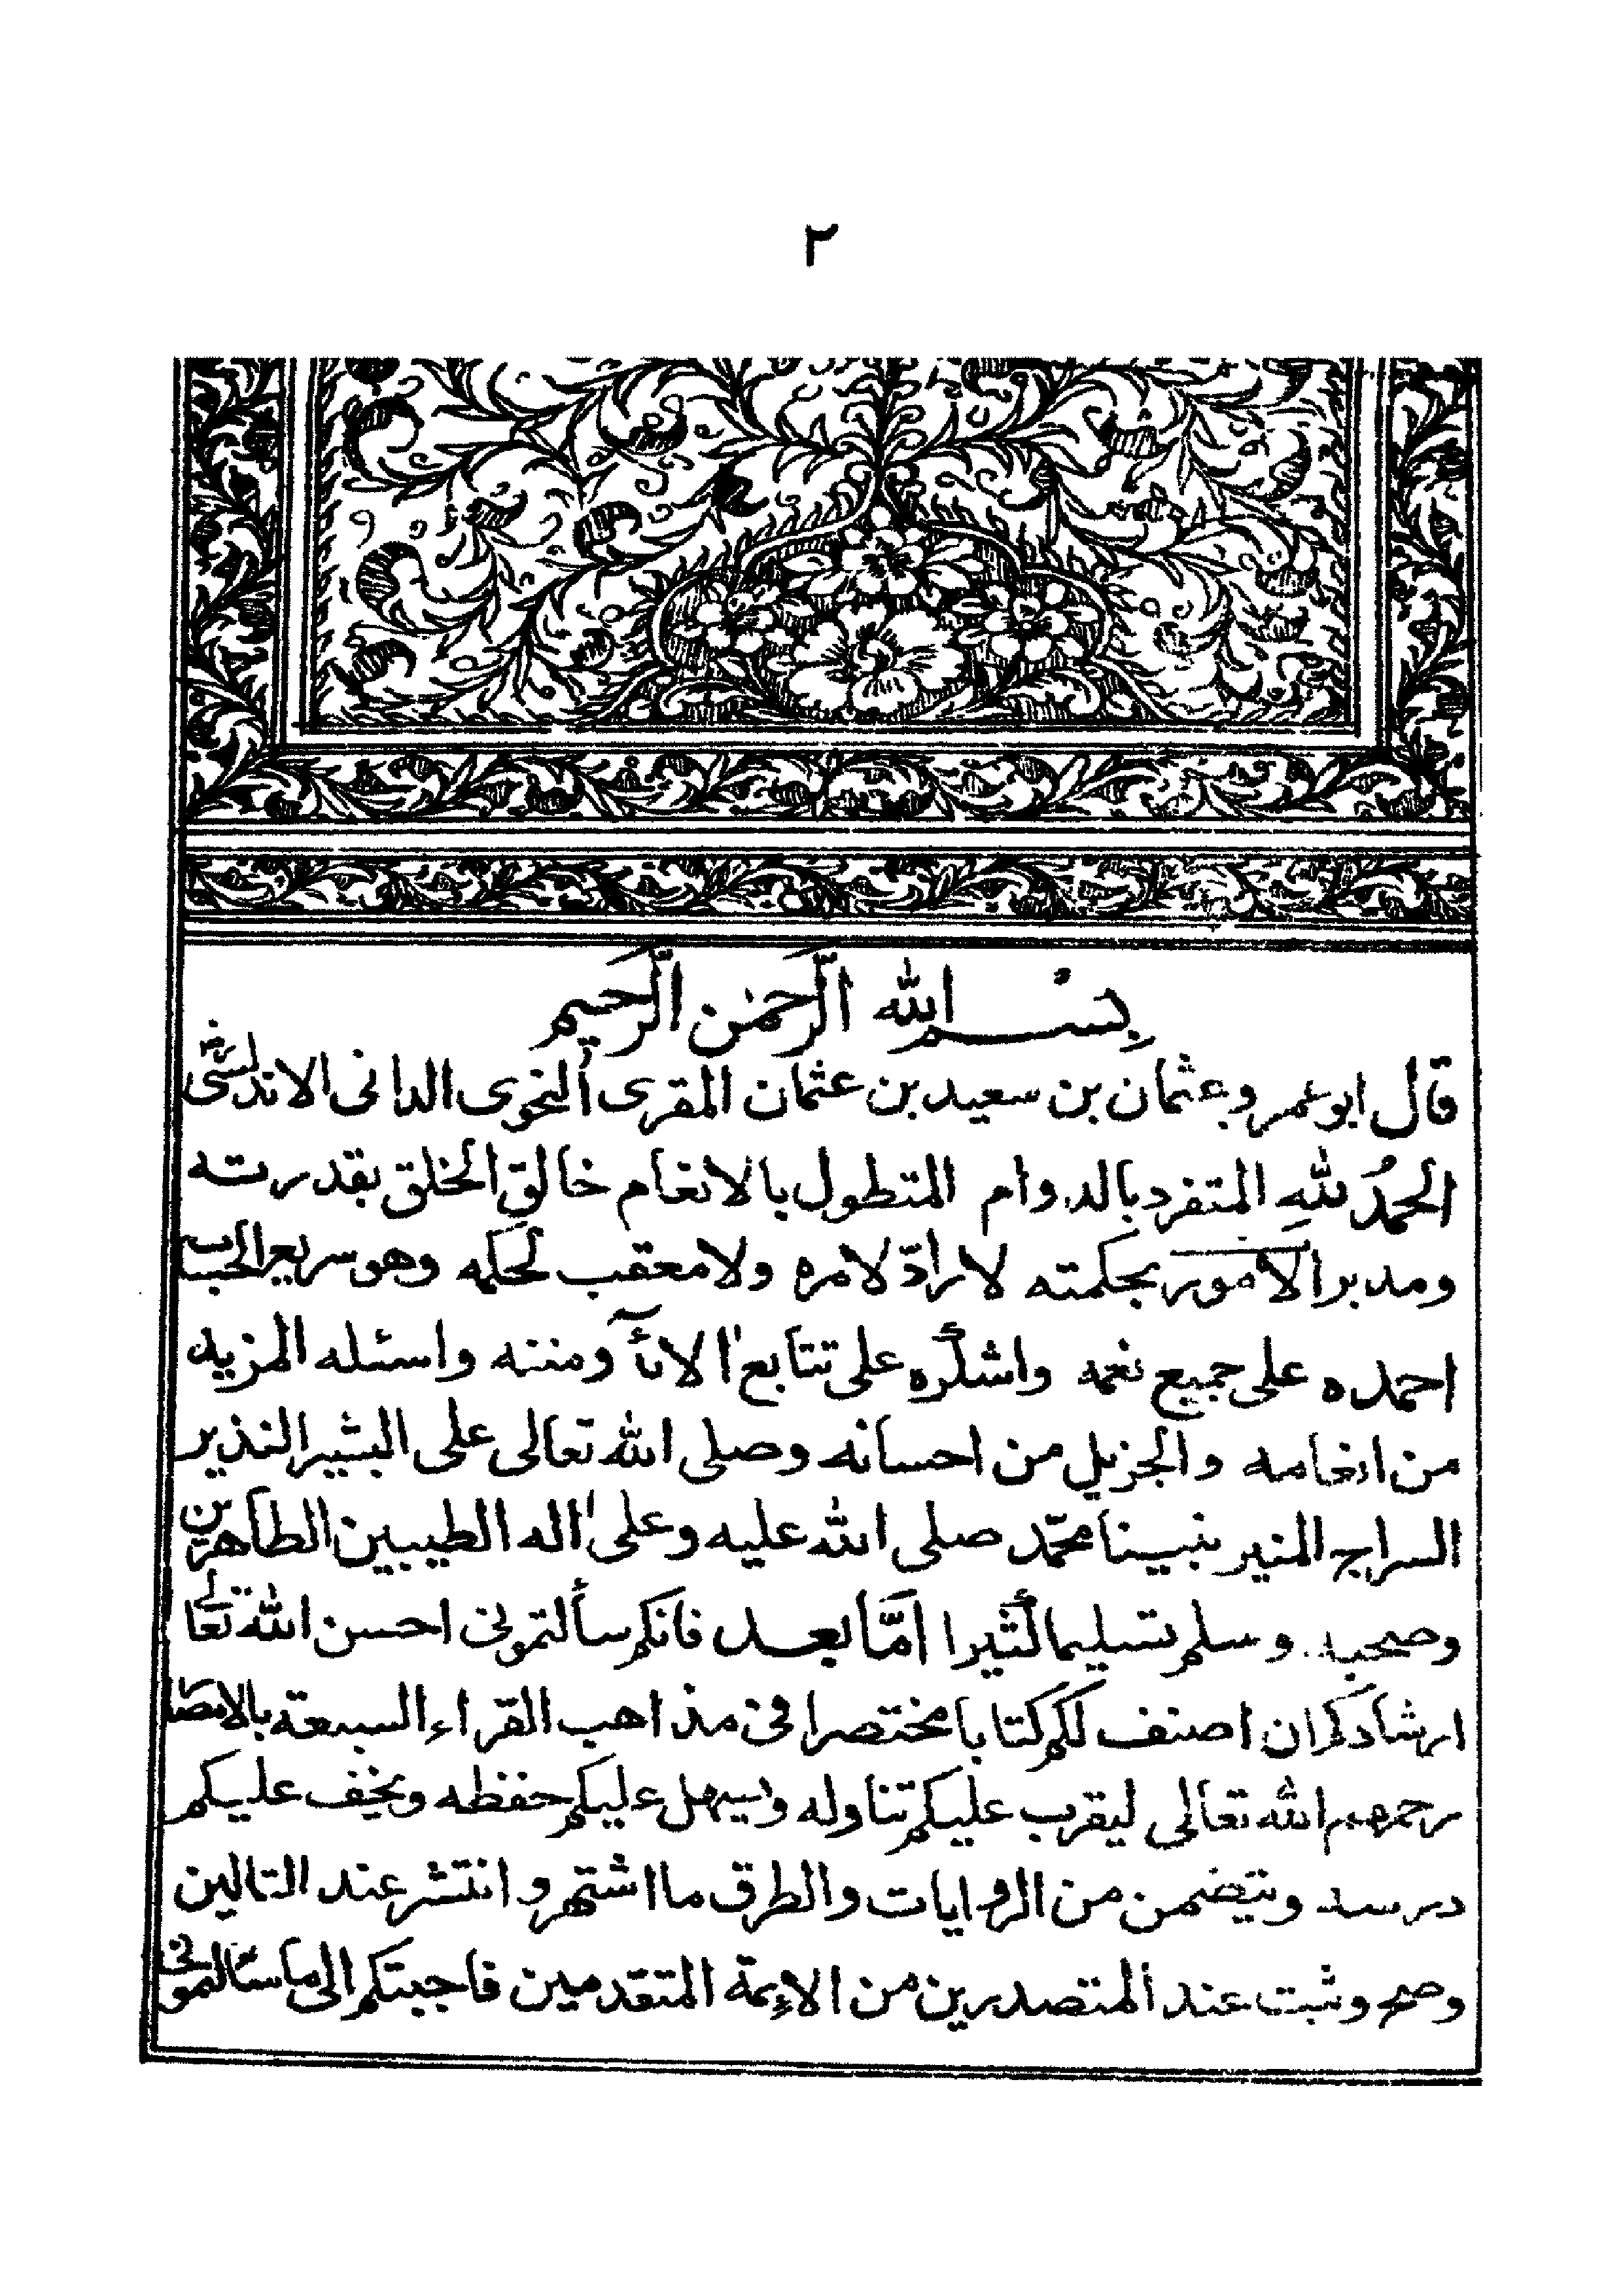 ٢
بِسْــم الله الرَّحمٰن الرَّحيم
قال ابو عمر وعثمان بن سعيد بن عثمان المقرى النحوى الدانى الاندلسى رضى
الحمدُ للهِ المتفرد بالدوام المتطول بالانعام خالق الخلق بقدرته
ومدبر الامور بحكمته لا رادّ لامره ولا معقب لحكمه وهو سريع الحساب
احمده على جميع نعمه واشكره على تتابع الائه ومننه واسئله المزيد
من انعامه والجزيل من احسانه وصلى الله تعالى على البشير النذير
السراج المنير نبينا محمّد صلى الله عليه وعلى اله الطيبين الطاهرين
وصحبه وسلم تسليما كثيرا امّا بعــد فانكم سألتمونى احسن الله تعالى
ارشادكم ان اصنف لكم كتابا مختصرا فى مذاهب القراء السبعة بالامصار
رحمهم الله تعالى ليقرب عليكم تناوله ويسهل عليكم حفظه ويخف عليكم
درسه ويتضمن من الروايات والطرق ما اشتهر وانتشر عند التالين
وصح وثبت عند المتصدرين من الائمة المتقدمين فاجبتكم الى ما سألتمونى